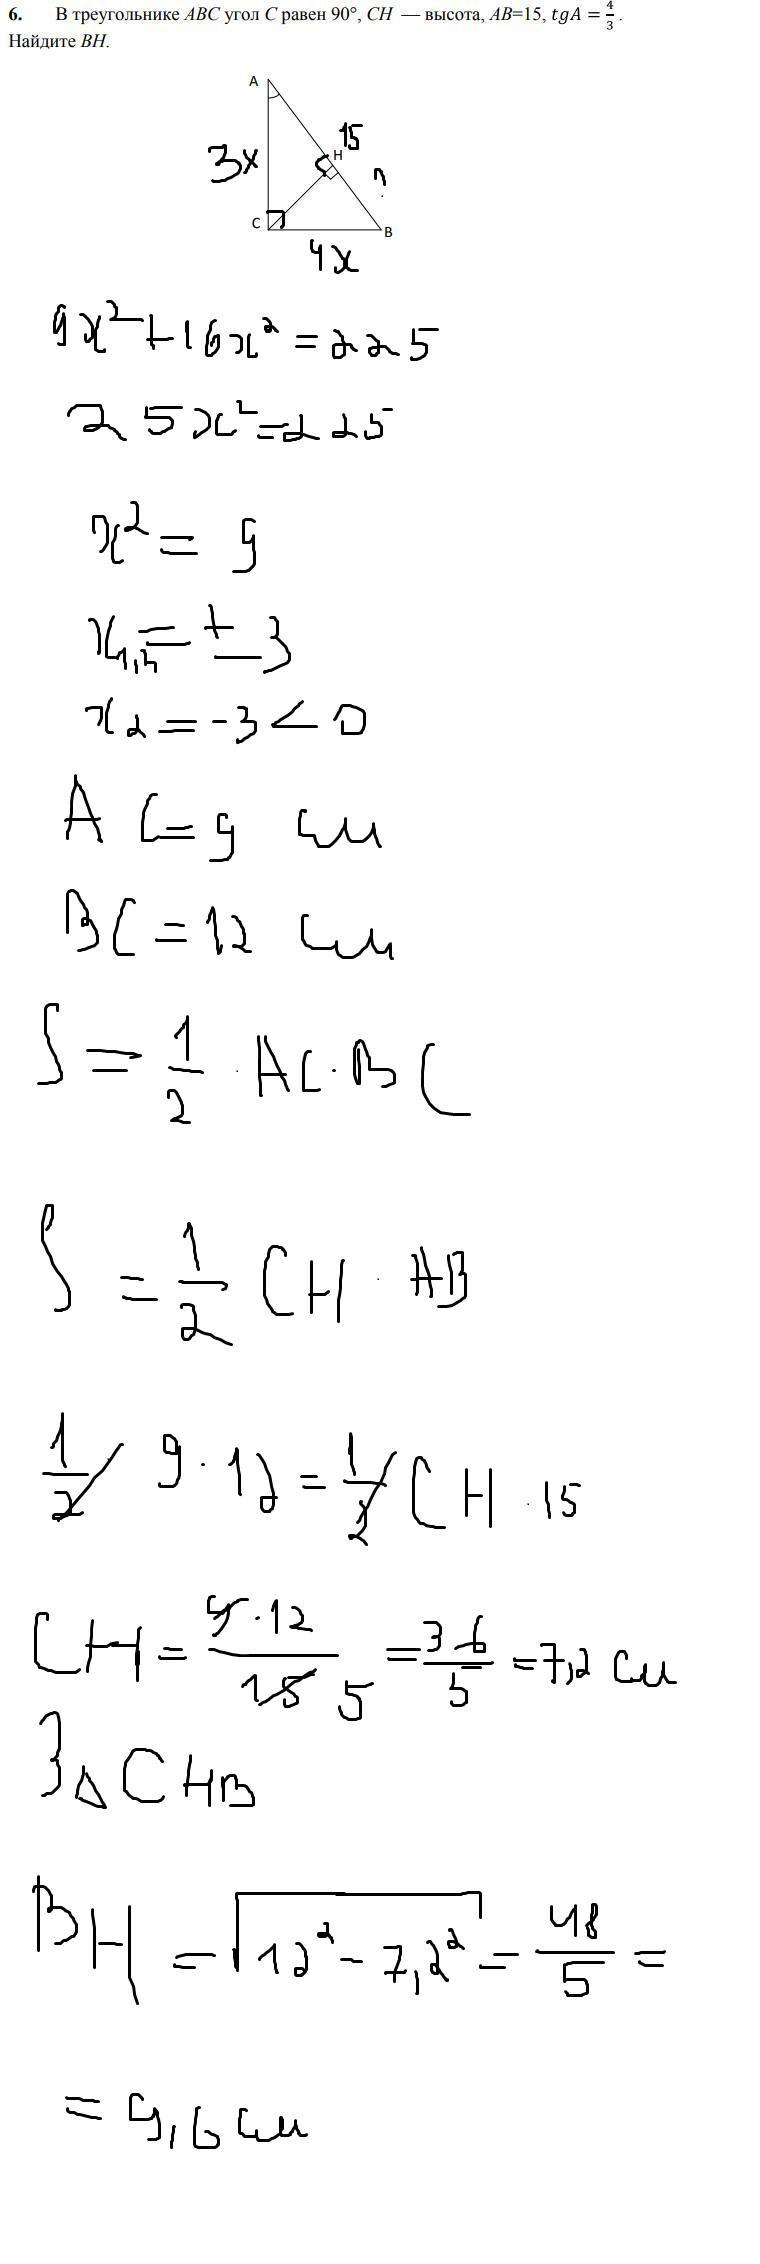 6. В треугольнике ABC угол C равен 90°, CH — высота, AB=15, tgA = 4/3 .
Найдите BH.
A
15
H
3x
?
C
B
4x
9x²+16x²=225
25x²=225
x²=9
x₁,₂=±3
x₂=-3<0
AC=9 см
BC=12 см
S=1/2·AC·BC
S=1/2 CH·AB
1/2 9·12=1/2 CH·15
CH=9·12/15 5=36/5=7,2 см
З △CHB
BH=√12²-7,2²=48/5=
=9,6 см